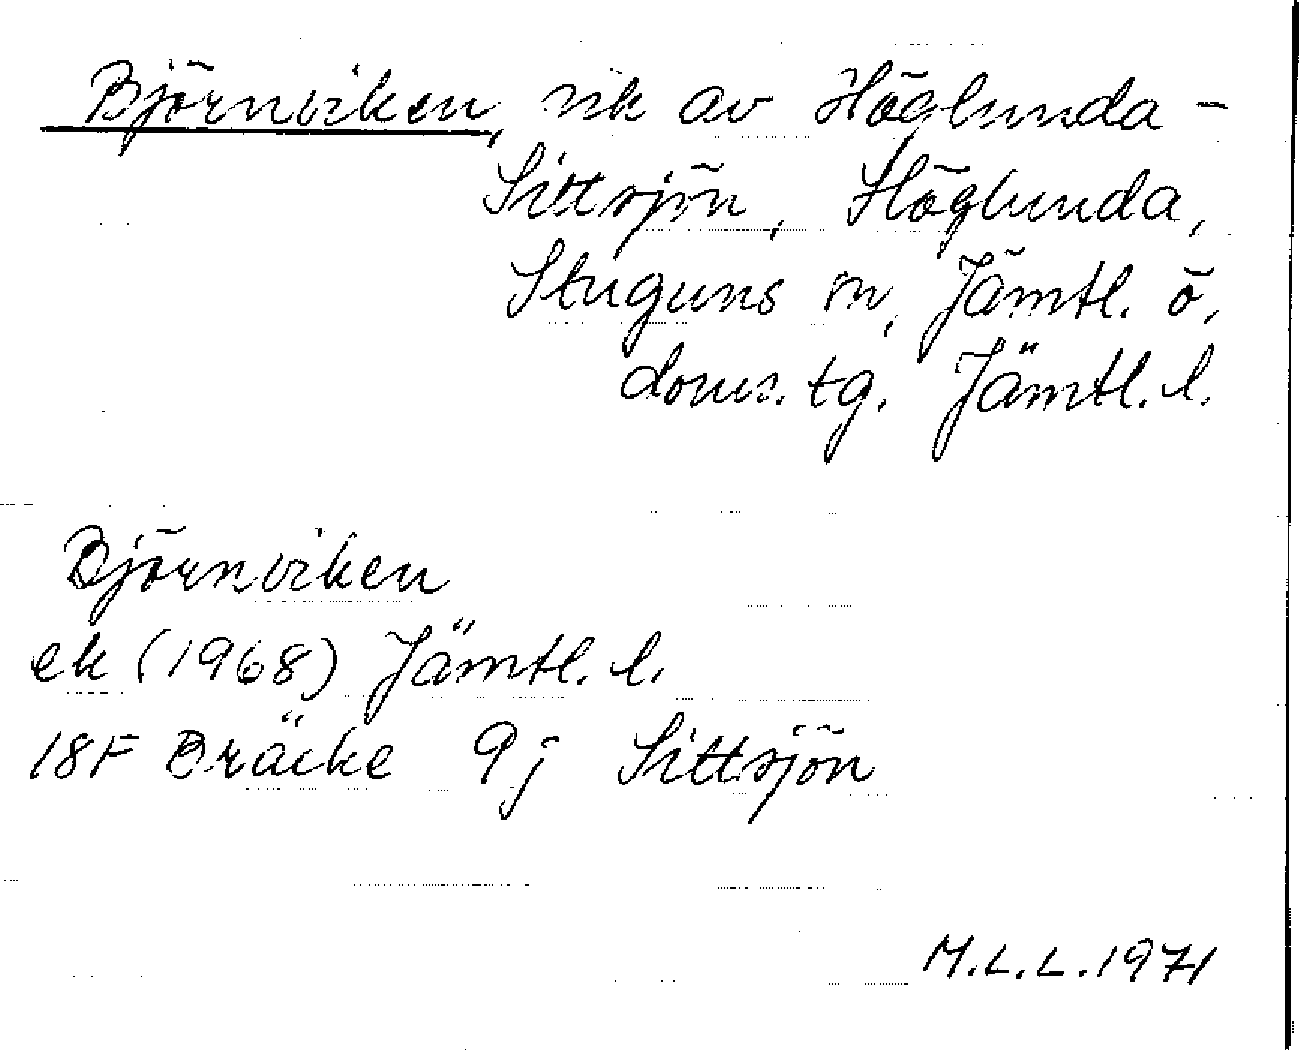 Björnviken, vik av Höglunda-
Sittsjön, Höglunda,
Stuguns sn, Jämtl. ö.
doms. tg. Jämtl. l.
Björnviken
ek (1968) Jämtl. l.
18F Bräcke 9j Sittsjön
M.L.L. 1971